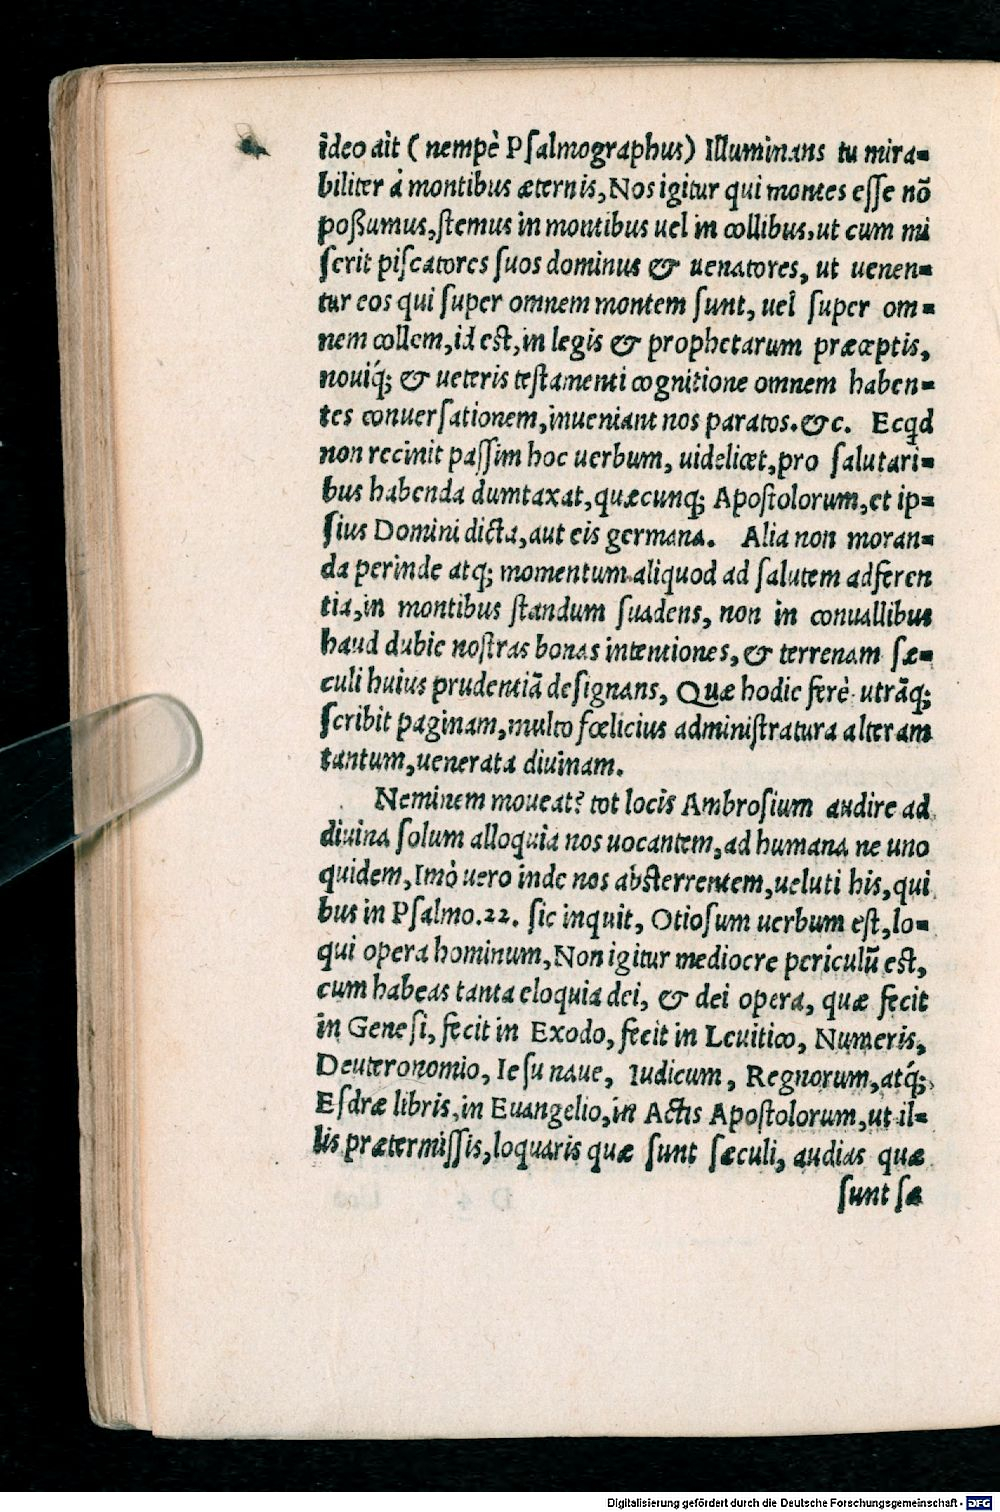 ideo ait ( nempè Pſalmographus) Illuminans tu mira=
biliter à montibus æternis, Nos igitur qui montes eſſe nõ
poßumus, ſtemus in montibus uel in collibus, ut cum mi
ſerit piſcatores ſuos dominus & uenatores, ut uenen=
tur eos qui ſuper omnem montem ſunt, uel ſuper om=
nem collem, id eſt, in legis & prophetarum præceptis,
nouiq́; & ueteris teſtamenti cognitione omnem haben=
tes conuerſationem, inueniant nos paratos. &c. Ecqd
non recinit paſſim hoc uerbum, uidelicet, pro ſalutari=
bus habenda dumtaxat, quæcunq; Apoſtolorum, et ip=
ſius Domini dicta, aut eis germana. Alia non moran=
da perinde atq; momentum aliquod ad ſalutem adferen
tia, in montibus ſtandum ſuadens, non in conuallibus
haud dubie noſtras bonas intentiones, & terrenam ſæ=
culi huius prudentiã deſignans, Quæ hodie ferè utrãq;
ſcribit paginam, multo fœlicius adminiſtratura alteram
tantum, uenerata diuinam.
Neminem moueat? tot locis Ambroſium audire ad
diuina ſolum alloquia nos uocantem, ad humana ne uno
quidem, Imò uero inde nos abſterrentem, ueluti his, qui
bus in Pſalmo. 22. ſic inquit, Otioſum uerbum eſt, lo=
qui opera hominum, Non igitur mediocre periculũ eſt,
cum habeas tanta eloquia dei, & dei opera, quæ fecit
in Geneſi, fecit in Exodo, fecit in Leuitico, Numeris,
Deuteronomio, Ieſu naue, Iudicum, Regnorum, atq́;
Eſdræ libris, in Euangelio, in Actis Apoſtolorum, ut il=
lis prætermiſſis, loquaris quæ ſunt ſæculi, audias quæ
ſunt ſæ
Digitalisierung gefördert durch die Deutsche Forschungsgemeinschaft - DFG